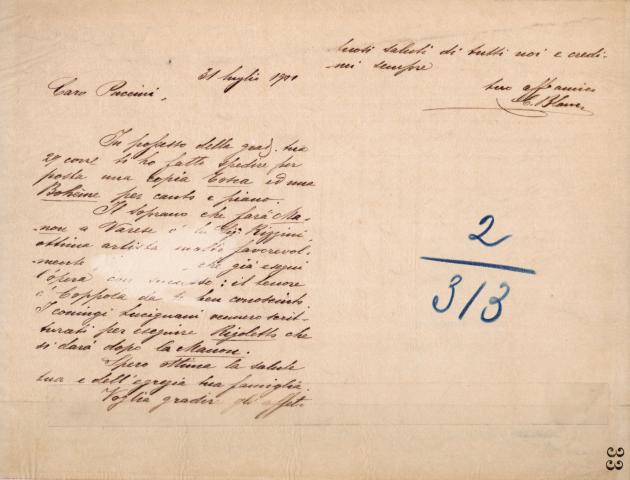 31 luglio 1901
Caro Puccini,
In possesso della grad. tua
29 corr. ti ho fatto spedire per
posta una copia Tosca ed una
Bohème per canto e piano.
Il soprano che farà Ma-
non a Varese è la Sig. Rizzini,
ottima artista molto favorevol-
mente che già eseguì
l'opera con successo: il tenore
è Coppola da te ben conosciuto
I coniugi Lucignani scrit-
turati per eseguire Rigoletto che
si darà dopo la Manon.
Spero ottima la salute
tua e dell'egregia tua famiglia.
Voglia gradir gli affet-
tuosi saluti di tutti noi e credi-
mi sempre
tuo aff amico
2
313
33